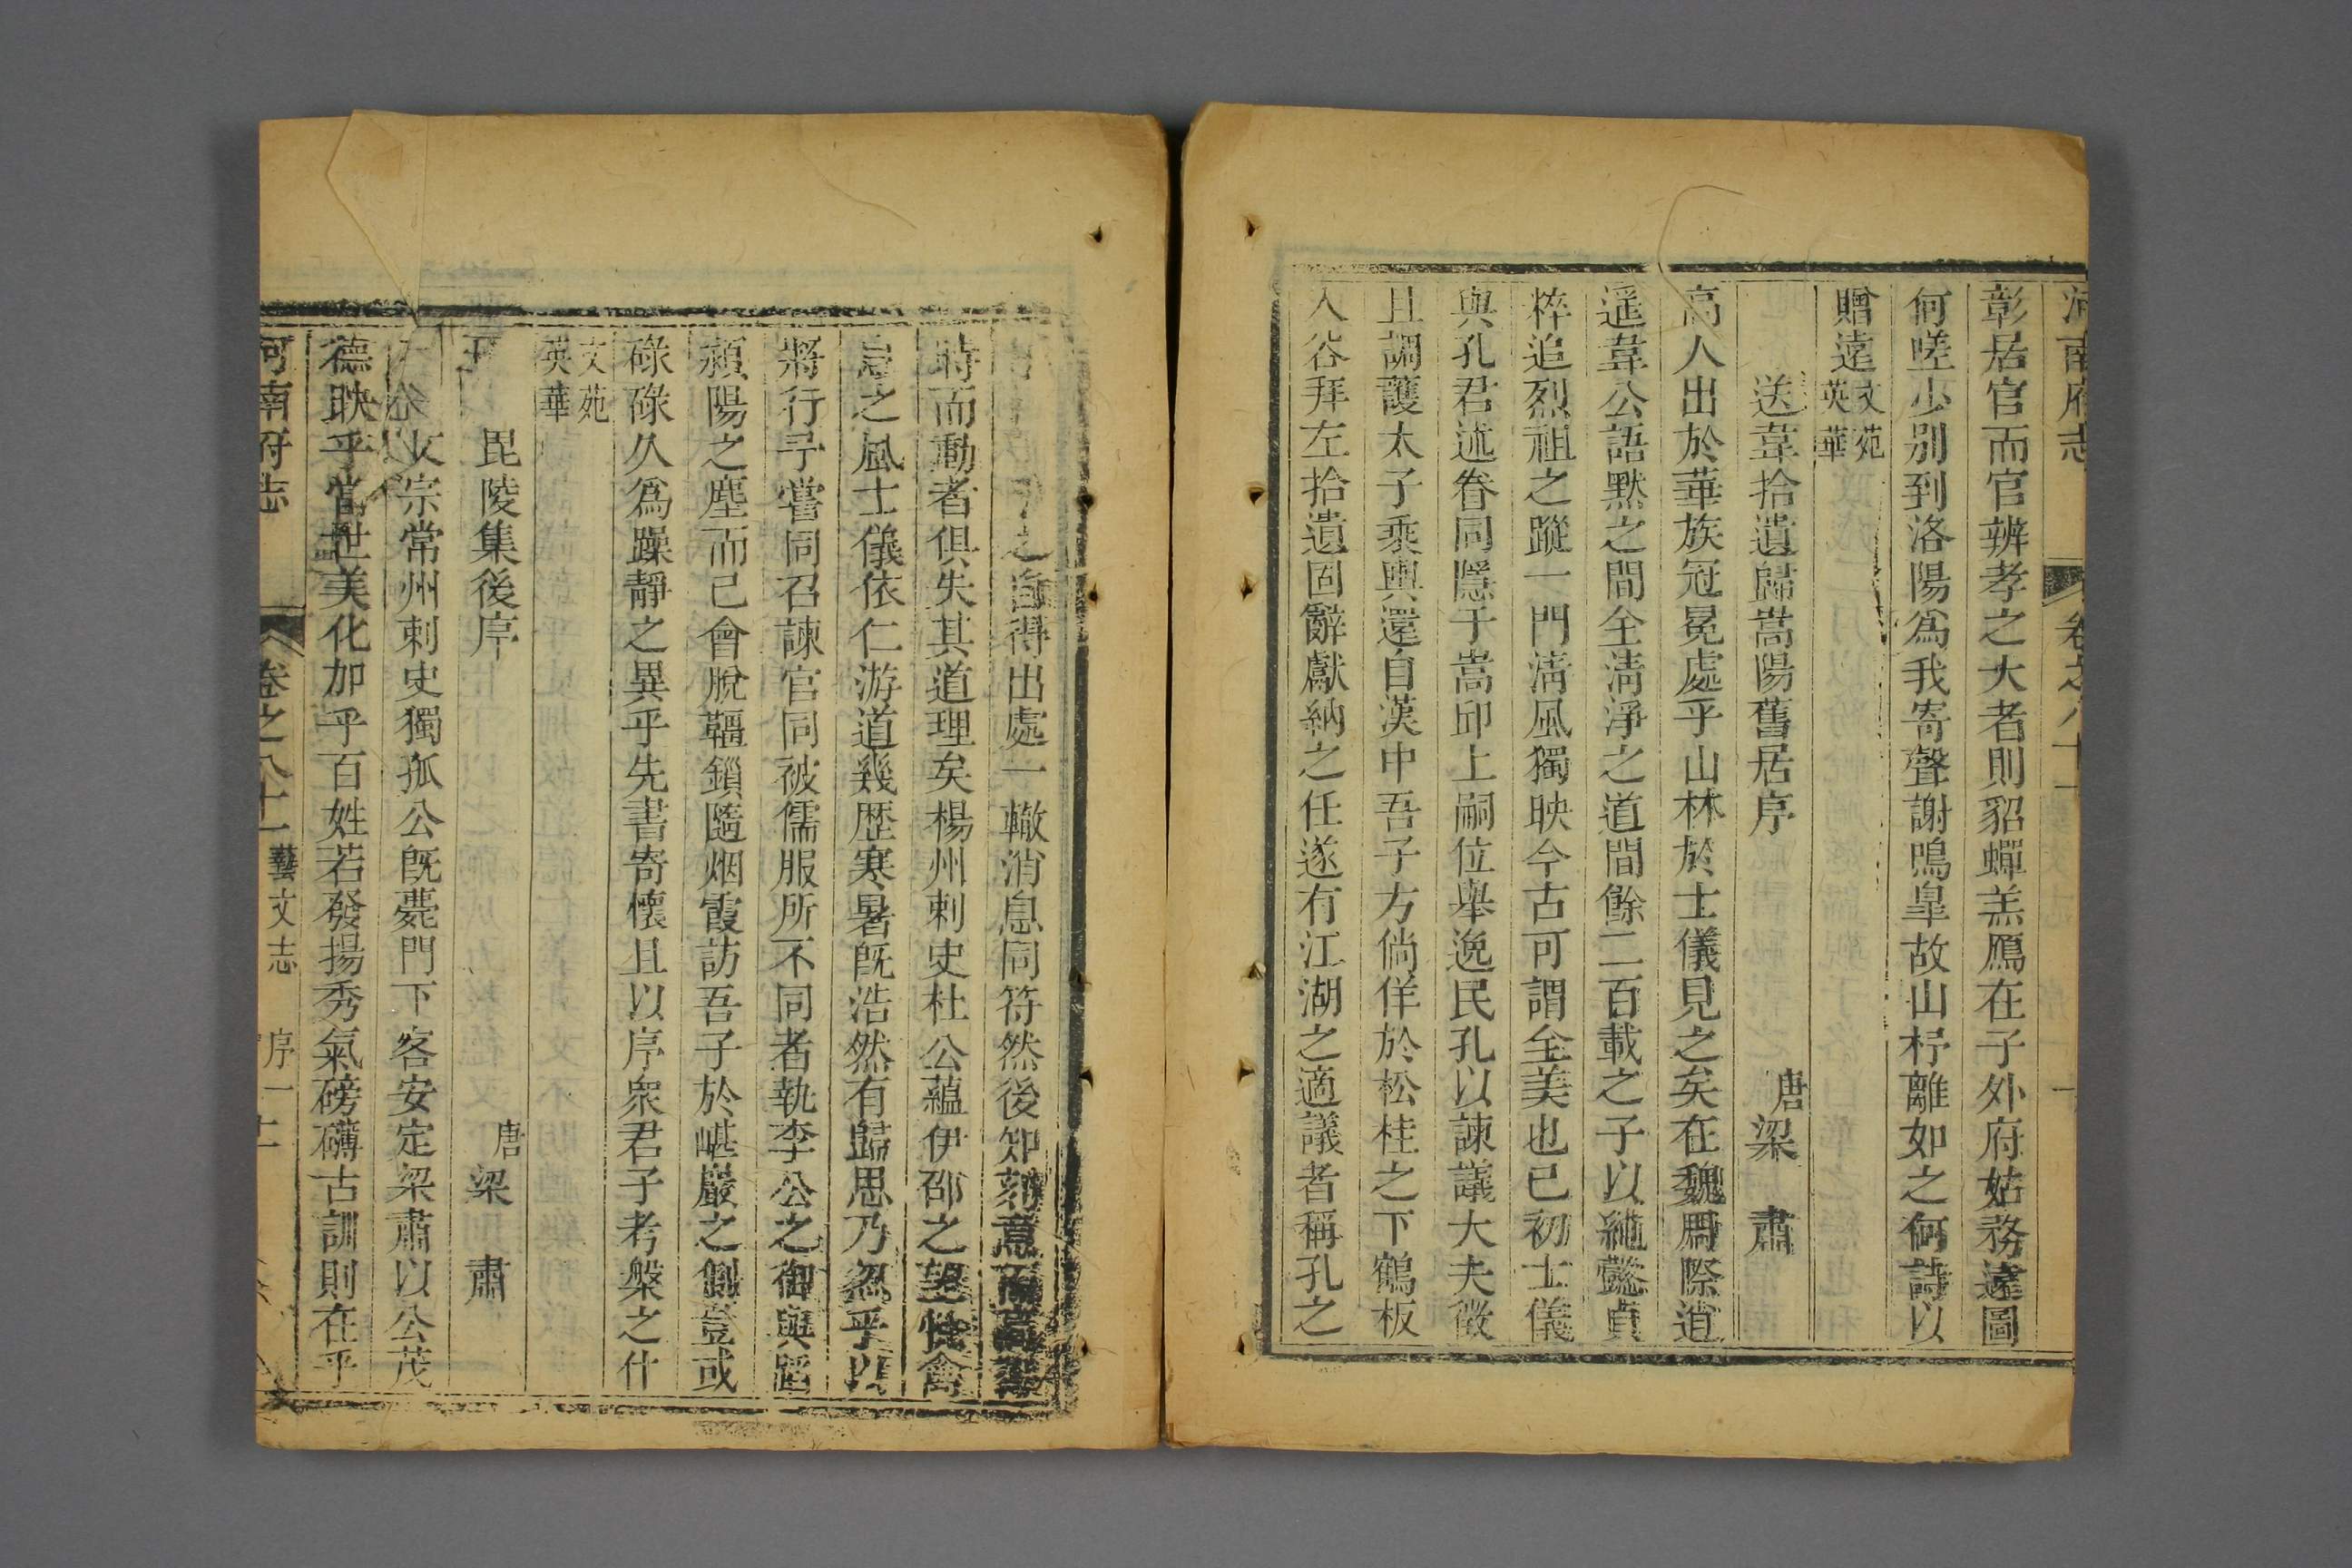 河南府志 卷之八十一
彰居官而官辨孝之大者則貂蟬羔鴈在子外府姑務遠圖
何嗟少別到洛陽爲我寄聲謝鳴臯故山杼離如之何詩以
贈遠文苑英華
送韋拾遺歸嵩陽舊居序 唐梁肅
高人出於華族冠冕處乎山林於士儀見之矣在魏周際逍
遥韋公語默之間全淸淨之道間餘二百載之子以純懿貞
粹追烈祖之蹤一門淸風獨映今古可謂全美也已初士儀
與孔君述睿同隱于嵩邱上嗣位舉逸民孔以諫議大夫徵
且調護太子乘輿還自漢中吾子方倘佯於松桂之下鶴板
入谷拜左拾遺固辭獻納之任遂有江湖之適議者稱孔之
自得出處一轍消息同符然後知刻意而高
時而動者俱失其道理矣楊州刺史杜公蘊伊邵之望恢禽
息之風士儀依仁游道幾歴寒暑旣浩然有歸思乃忽乎以
將行予嘗同召諫官同被儒服所不同者執李公之御與蹈
潁陽之塵而已會脫韁鎖隨烟霞訪吾子於嵁巖之側豈或
碌碌久爲躁靜之異乎先書寄懷且以序衆君子考槃之什
文苑英華
毘陵集後序 唐梁肅
宗常州刺史獨孤公旣薨門下客安定梁肅以公茂
德映乎當世美化加乎百姓若發揚秀氣磅礴古訓則在乎
河南府志 卷之八十一 藝文志 序